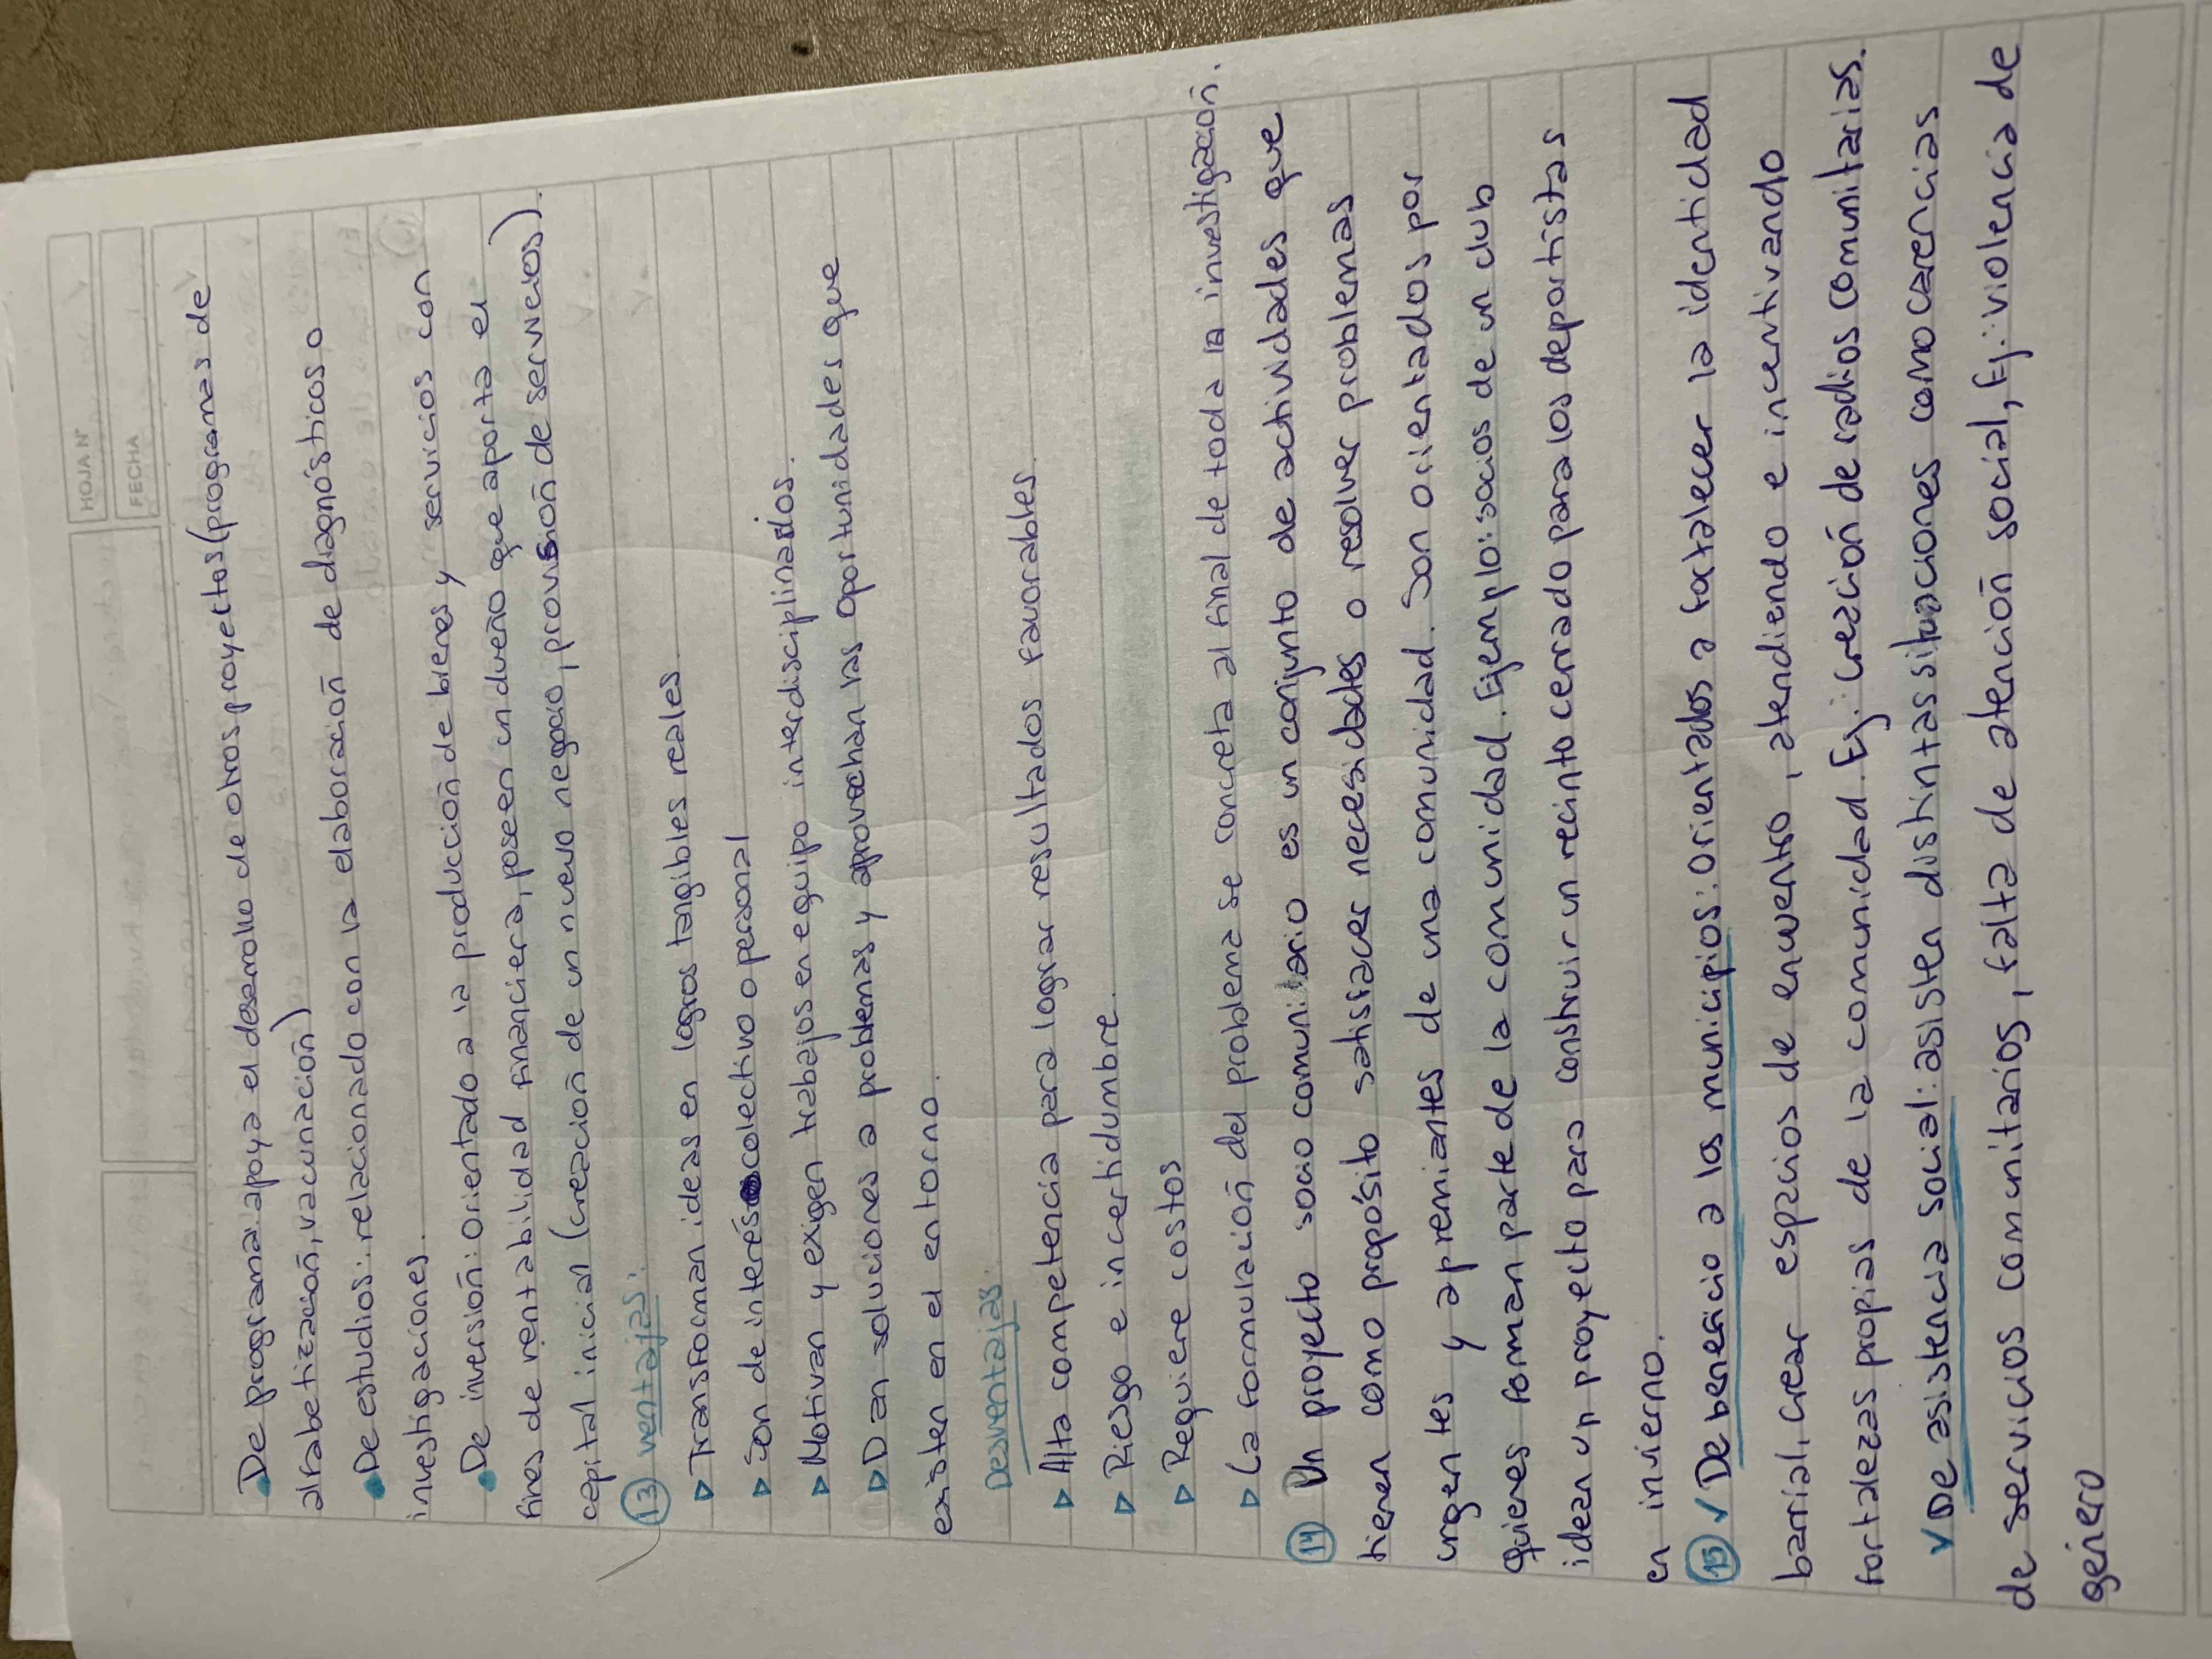 HOJA Nº
FECHA
De programa: apoya el desarrollo de otros proyectos (programas de
alfabetización, vacunación)
De estudios: relacionado con la elaboración de diagnósticos o
investigaciones.
De inversión: Orientado a la producción de bienes y servicios con
fines de rentabilidad financiera, poseen un dueño que aporta el
capital inicial (creación de un nuevo negocio, provisión de servicios).
13 Ventajas:
▷ Transforman ideas en logros tangibles reales
▷ Son de interés colectivo o personal
▷ Motivan y exigen trabajos en equipo interdisciplinarios.
▷ Dan soluciones a problemas y aprovechan las oportunidades que
existen en el entorno.
Desventajas:
▷ Alta competencia para lograr resultados favorables.
▷ Riesgo e incertidumbre.
▷ Requiere costos
▷ La formulación del problema se concreta al final de toda la investigación.
14 Un proyecto socio comunitario es un conjunto de actividades que
tienen como propósito satisfacer necesidades o resolver problemas
urgentes y apremiantes de una comunidad. Son orientados por
quienes forman parte de la comunidad. Ejemplo: socios de un club
idean un proyecto para construir un recinto cerrado para los deportistas
en invierno.
15 ✓ De beneficio a los municipios: Orientados a fortalecer la identidad
barrial, crear espacios de encuentro, atendiendo e incentivando
fortalezas propias de la comunidad. Ej: creación de radios comunitarias.
✓ De asistencia social: asisten distintas situaciones como carencias
de servicios comunitarios, falta de atención social, Ej: violencia de
género